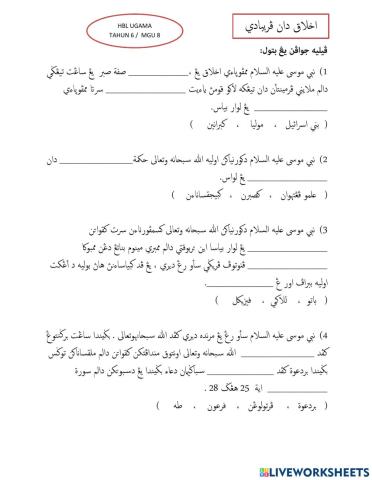 HBL UGAMA
TAHUN 6 / MGU 8
اخلاق دان ڤريبادي
ڤيليه جواڤن يڠ بتول:
1) نبي موسى عليه السلام ممڤوياءي اخلاق يڠ ،____________ صفة صبر يڠ ساڠت تيڠݢي
دالم ملايني ڤرمينتأن دان تيڠکه لاکو قومڽ ياءيت ____________ سرتا ممڤوياءي
____________ يڠ لوار بياس.
( بني اسرائيل ، موليا ، کبرانين )
2) نبي موسى عليه السلام دکورنياکن اوليه الله سبحانه وتعالى حکمة ____________ دان
____________ يڠ لواس.
( علمو ڤڠتهوان ، کصبرن ، کبيجقساناءن )
3) نبي موسى عليه السلام دکورنياکن الله سبحانه وتعالى کسمڤورناءن سرت کقواتن
____________ يڠ لوار بياسا اين تربوقتي دالم ممبري مينوم بناتڠ دڠن ممبوکا
____________ ڤنوتوڤ ڤريݢي ساورڠ ديري ، يڠ قد کبياساءنڽ هاڽ بوليه د اڠکت
اوليه ببراڤ اورڠ ____________.
( باتو ، للاکي ، فيزيکل )
4) نبي موسى عليه السلام ساورڠ يڠ مرنده ديري کڤد الله سبحانهوتعالى . بݢيندا ساڠت برݢنتوڠ
کڤد ____________ الله سبحانه وتعالى اونتوق منداڤتکن کقواتن دالم ملقساناکن توݢس
بݢيندا بردعوة کڤد ____________ سباݢايمان دعاء بݢيندا يڠ دسبوتکن دالم سورة
____________ اية 25 هڠݢ 28 .
( بردعوة ، ڤرتولوڠن ، فرعون ، طه )
LIVEWORKSHEETS